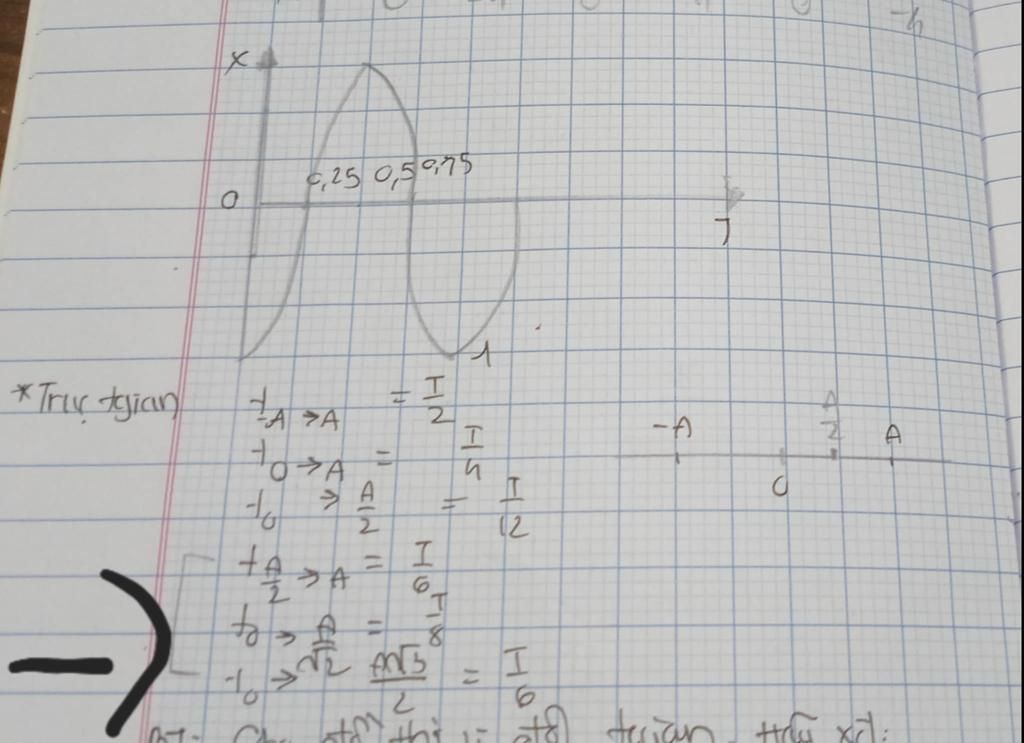 -4
x
0,25 0,5 0,75
0
T
-1
* Trục tgian
t-A → A = T/2
t0 → A = T/4
t0 → A/2 = T/12
tA/2 → A = T/6
t0 → A/√2 = T/8
t0 → A√3/2 = T/6
-A 0 A/2 A
thị
tgian